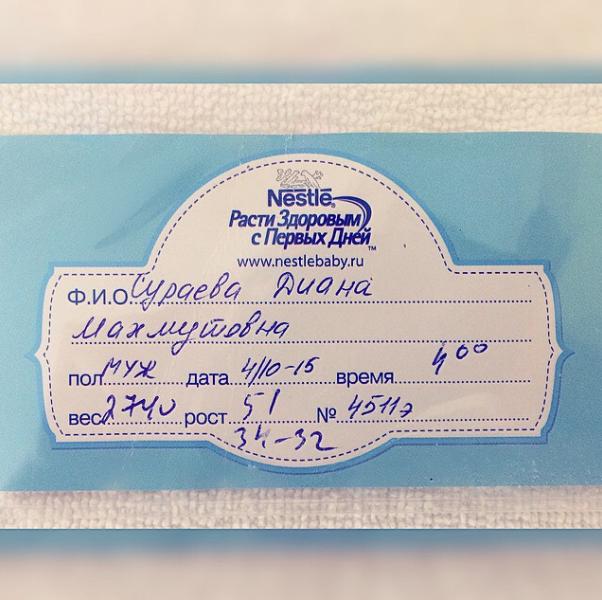 Nestlé
Расти Здоровым
с Первых Дней™
www.nestlebaby.ru
Ф.И.О Сураева Диана
Махмутовна
пол муж дата 4/10-15 время 4 00
вес 2740 рост 51 № 4511э
34-32